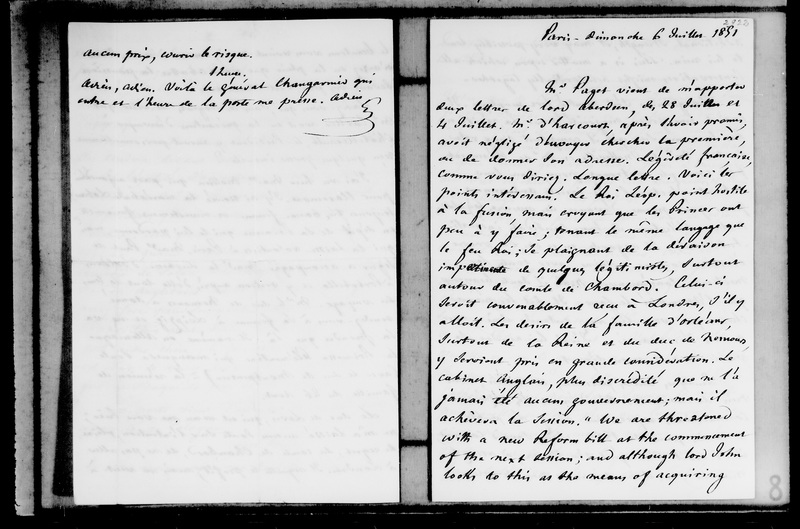 aucun prix, courir le risque.
1 heure
Adieu, adieu. Voilà le général Changarnier qui
entre et l'heure de la poste me presse. Adieu
2222
Paris - Dimanche 6 Juillet 1851
Mr. Paget vient de m'apporter
deux lettres de lord Aberdeen, des 28 Juillet et
4 Juillet. Mr. d'harcourt, après l'avoir promis,
avoit négligé d'envoyer chercher la première,
ou de donner son adresse. Légèreté française,
comme vous diriez. Longue lettre. Voici les
points intéressans. Le Roi Léop. point hostile
à la fusion, mais croyant que les Princes ont
peu à y faire; tenant le même langage que
le feu Roi; se plaignant de la déraison
impertinente de quelques légitimistes, surtout
autour du comte de Chambord. Celui-ci
seroit convenablement reçu à Londres, s'il y
alloit. Les desirs de la famille d'orléans,
surtout de la Reine et du duc de Nemours,
y seroient pris en grande considération. Le
cabinet Anglais, plus discrédité que ne l'a
jamais été aucun gouvernement; mais il
achèvera la Session. "We are threatened
with a new Reform bill at the commencement
of the next session; and although lord John
looks to this as the means of acquiring
8